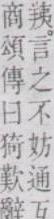 言之不妨通
商頌傳曰猗歎辭